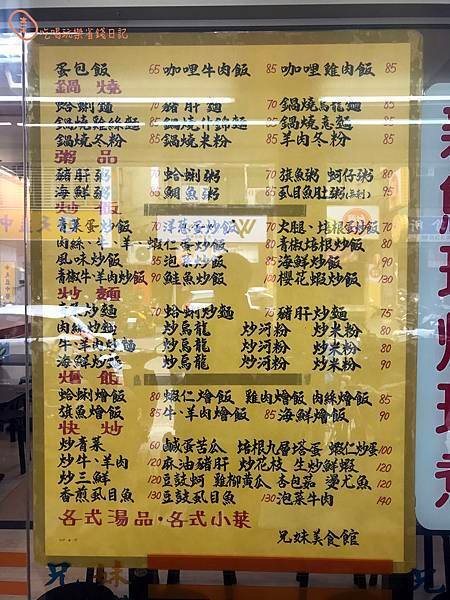 吃喝玩樂省錢日記
蛋包飯 65 咖哩牛肉飯 85 咖哩雞肉飯 85
鍋燒
蛤蜊麵 70 豬肝麵 70 鍋燒烏龍麵 85
鍋燒雞絲麵 85 鍋燒什錦麵 85 鍋燒意麵 85
鍋燒冬粉 85 鍋燒米粉 85 羊肉冬粉 85
粥品
豬肝粥 70 蛤蜊粥 70 旗魚粥 蚵仔粥 80
海鮮粥 85 鯛魚粥 85 虱目魚肚粥 95
炒飯
青菜蛋炒飯 70 洋蔥蛋炒飯 70 火腿、培根蛋炒飯 70
肉絲、牛、羊、蝦仁蛋炒飯 80 青椒培根炒飯 80
風味炒飯 85 泡菜炒飯 85 海鮮炒飯 90
青椒牛、羊肉炒飯 90 鮭魚炒飯 120 櫻花蝦炒飯 120
炒麵
炒麵 70 蛤蜊炒麵 75 豬肝炒麵 75
肉絲炒麵 炒烏龍 炒河粉 炒米粉 80
牛、羊肉炒麵 炒烏龍 炒河粉 炒米粉 80
海鮮炒麵 炒烏龍 炒河粉 炒米粉 90
燴飯
蛤蜊燴飯 80 蝦仁燴飯 雞肉燴飯 肉絲燴飯 85
旗魚燴飯 85 牛、羊肉燴飯 90 海鮮燴飯 90
快炒
炒青菜 60 鹹蛋苦瓜 培根九層塔蛋 蝦仁炒蛋 100
炒牛、羊肉 120 麻油豬肝 炒花枝 生炒鮮蝦 120
炒三鮮 120 豆豉蚵 雞柳黃瓜 杏包菇 燙尤魚 120
香煎虱目魚 130 豆豉虱目魚 130 泡菜牛肉 140
各式湯品・各式小菜
兄妹美食館
兄 妹